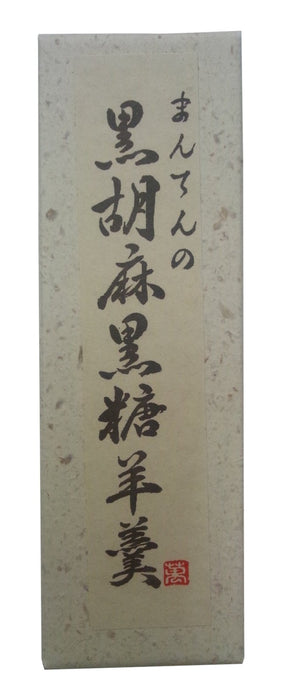 まんてんの
黒胡麻黒糖羊羹
萬